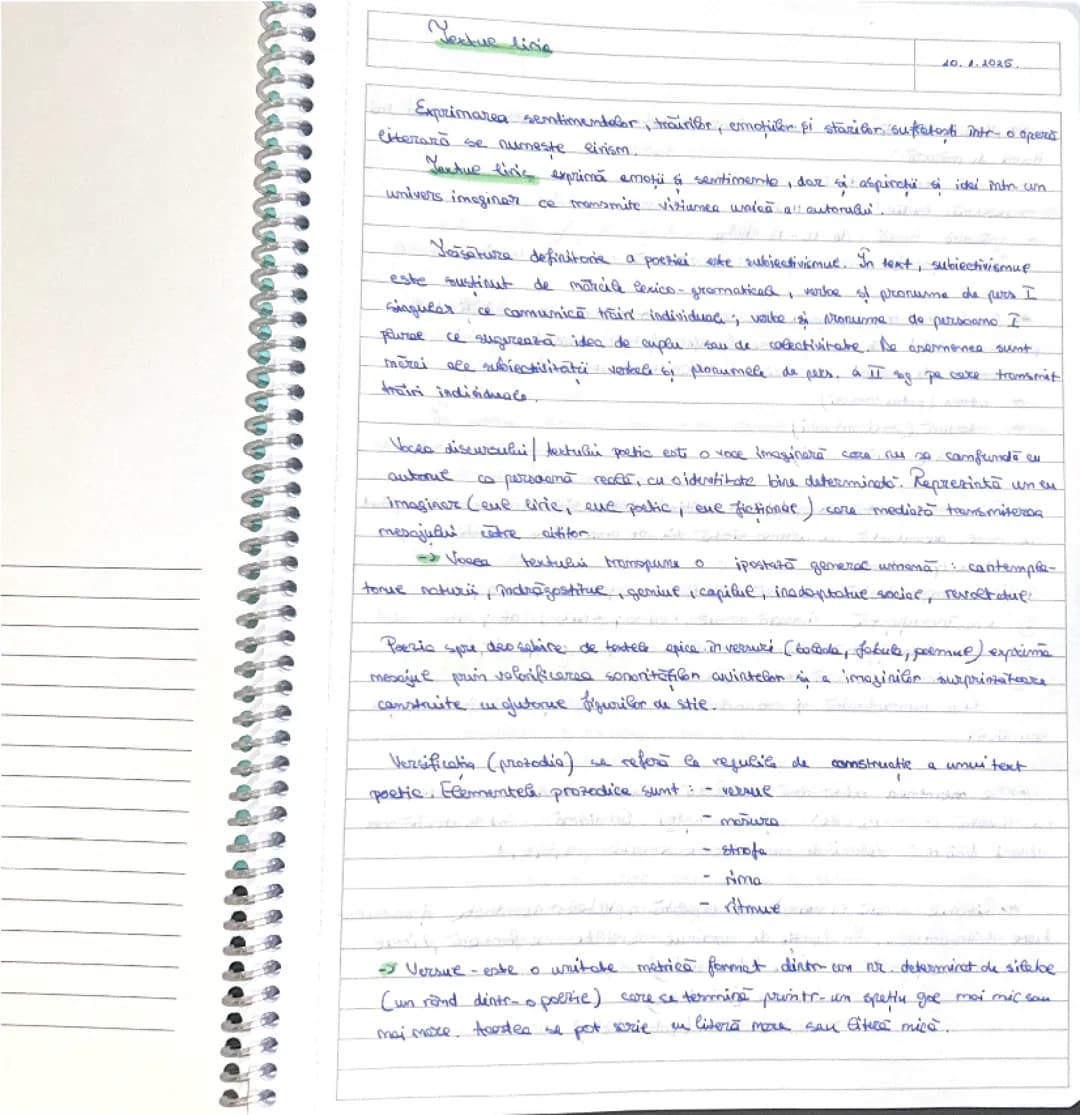 Textul liric
10.1.2025.
Exprimarea sentimentelor, trăirilor, emoțiilor și stărilor sufletești într-o operă
literară se numește lirism.
Textul liric exprimă emoții și sentimente, dar și aspirații și idei într un
univers imaginar ce transmite viziunea unică a autorului.
Trăsătura definitorie a poeziei este subiectivismul. În text, subiectivismul
este susținut de mărcile lexico-gramaticale, verbe și pronume de pers I
singular ce comunică trăiri individuale; verbe și pronume de persoana I
plural ce sugerează ideea de cuplu sau de colectivitate. De asemenea sunt
mărci ale subiectivității verbele și pronumele de pers. a II sg pe care transmit
trăiri individuale.
Vocea discursului/textului poetic este o voce imaginară care nu se confundă cu
autorul ca persoană reală, cu o identitate bine determinată. Reprezintă un eu
imaginar (eul liric, eul poetic, eul ficțional) care mediază transmiterea
mesajului către cititor.
-> Vocea textului transpune o ipostază general umană: contempla-
torul naturii, îndrăgostitul, geniul, copilul, inadaptatul social, revoltatul.
Poezia spre deosebire de textele epice în versuri (balada, fabula, poemul) exprimă
mesajul prin valorificarea sonorităților cuvintelor și a imaginilor surprinzătoare
construite cu ajutorul figurilor de stil.
Versificația (prozodia) se referă la regulile de construcție a unui text
poetic. Elementele prozodice sunt: - versul
- măsura
- strofa
- rima
- ritmul
-> Versul - este o unitate metrică format dintr-un nr. determinat de silabe
(un rând dintr-o poezie) care se termină printr-un spațiu gol mai mic sau
mai mare. Acestea se pot scrie cu literă mare sau literă mică.